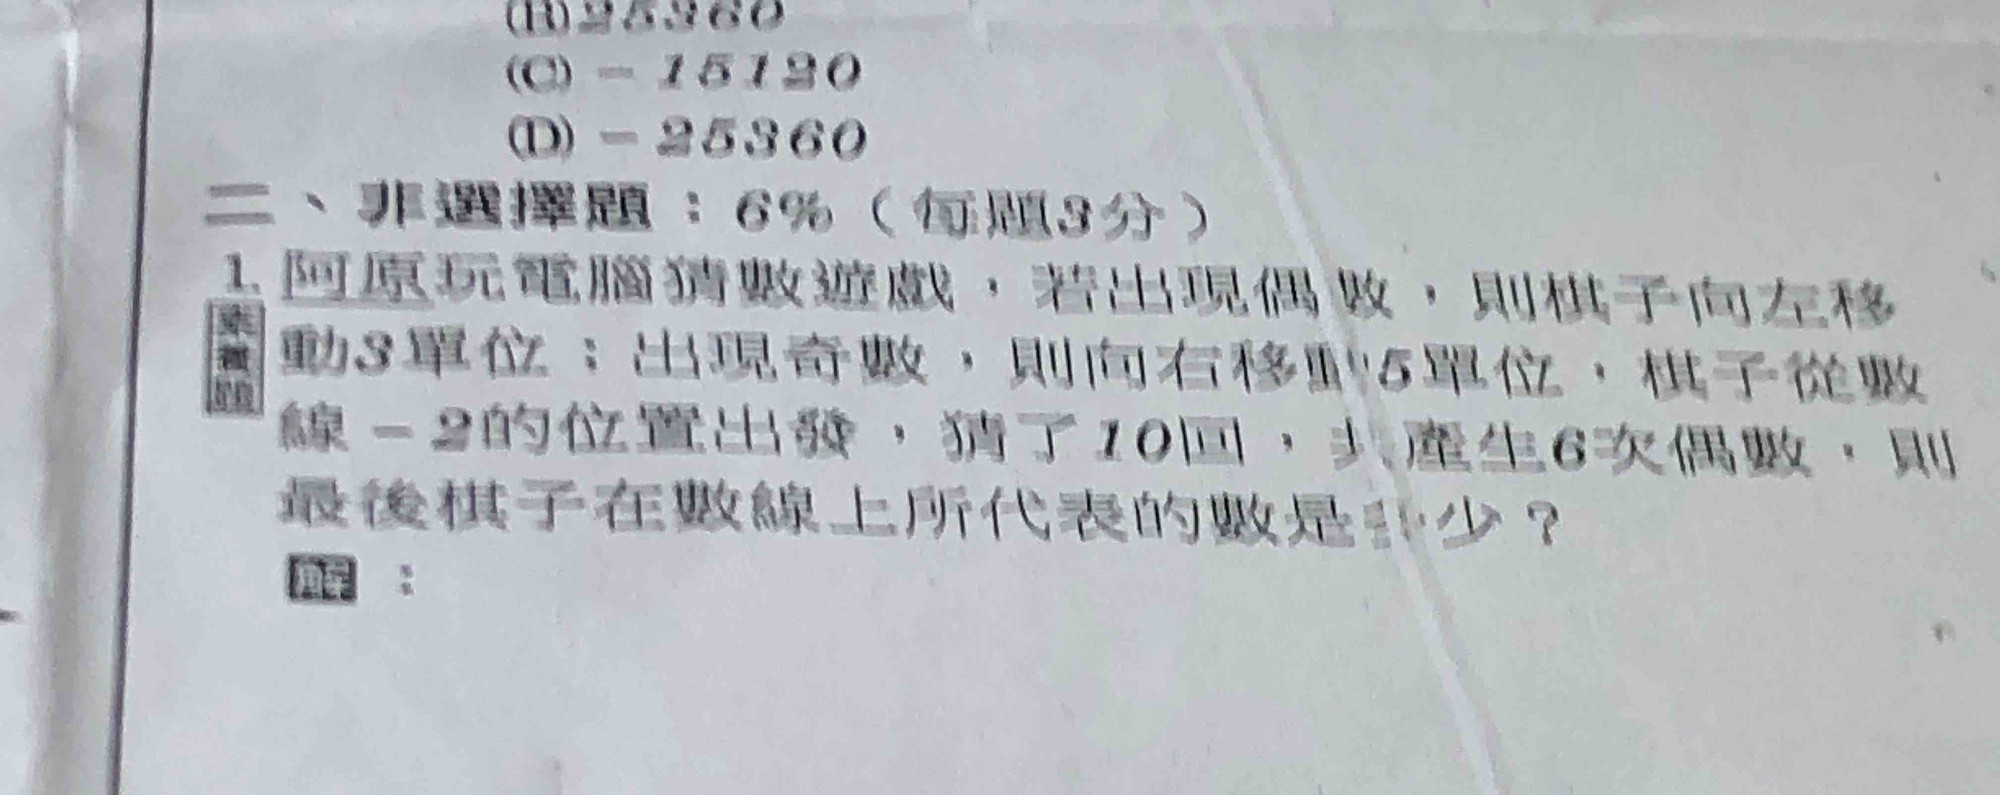 (B)25360
(C)－15120
(D)－25360
二、非選擇題：6%（每題3分）
1. 阿原玩電腦猜數遊戲，若出現偶數，則棋子向左移
素養題
動3單位；出現奇數，則向右移動5單位，棋子從數
線－2的位置出發，猜了10回，共產生6次偶數，則
最後棋子在數線上所代表的數是多少？
解：